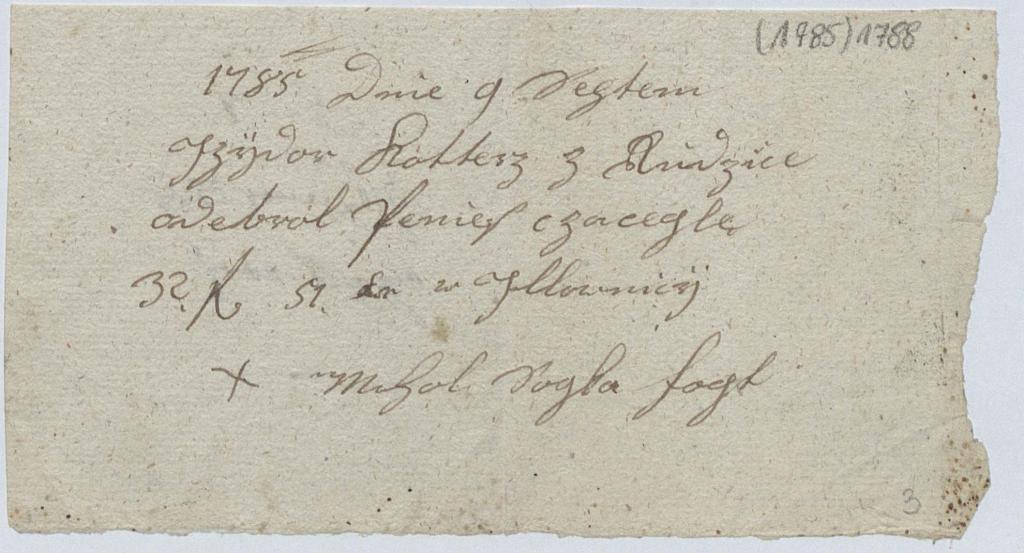 (1785) 1788
1785 Dnie 9 Septem
Jzÿdor Kotterz z Rudzice
odebrol Penięs czacegle
32. f. 51. xr w Jllownicÿ
+ Mihol Sogla fogt
3